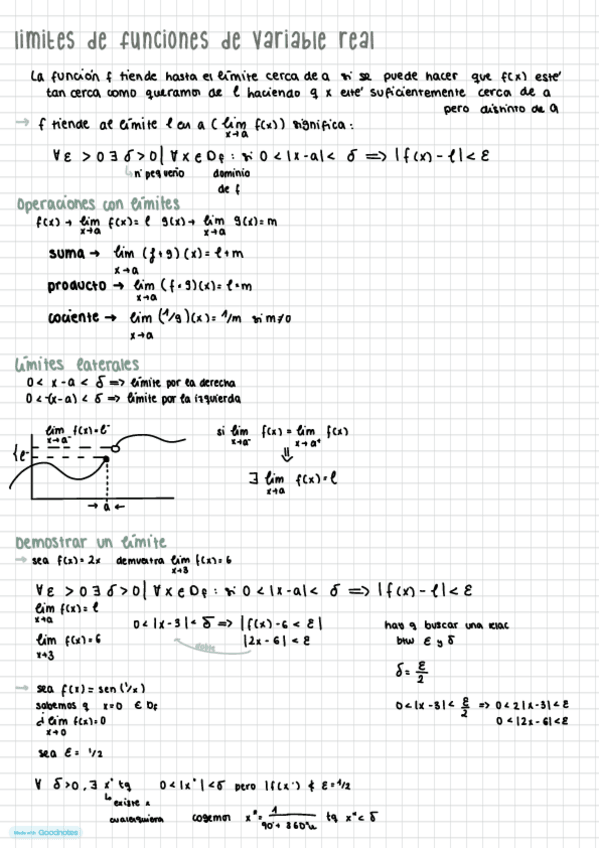 límites de funciones de variable real
La función f tiende hasta el límite cerca de a si se puede hacer que f(x) esté
tan cerca como queramos de l haciendo q x esté suficientemente cerca de a
pero distinto de a
→ f tiende al límite l en a ( lim f(x)) significa:
x→a
∀ε > 0 ∃ δ > 0 | ∀x ∈ Df : si 0 < |x - a| < δ => |f(x) - l| < ε
↳ nº pequeño dominio
de f
Operaciones con límites
f(x) → lim f(x) = l g(x) → lim g(x) = m
x→a x→a
suma → lim (f+g)(x) = l+m
x→a
producto → lim (f·g)(x) = l·m
x→a
cociente → lim (1/g)(x) = 1/m si m≠0
x→a
Límites laterales
0 < x - a < δ => límite por la derecha
0 < -(x-a) < δ => límite por la izquierda
lim f(x) = l⁻
x→a⁻
l⁻
→ a ←
si lim f(x) = lim f(x)
x→a⁻ x→a⁺
⇓
∃ lim f(x) = l
x→a
Demostrar un límite
→ sea f(x) = 2x demuestra lim f(x) = 6
x→3
∀ε > 0 ∃ δ > 0 | ∀x ∈ Df : si 0 < |x - a| < δ => |f(x) - l| < ε
lim f(x) = l
x→a
0 < |x - 3| < δ => |f(x) - 6 < ε|
lim f(x) = 6 |2x - 6| < ε
x→3
hay q buscar una relac
btw ε y δ
δ = ε/2
0 < |x - 3| < ε/2 => 0 < 2|x - 3| < ε
0 < |2x - 6| < ε
→ sea f(x) = sen (1/x)
sabemos q x=0 ∈ Df
¿ lim f(x) = 0
x→0
sea ε = 1/2
∀ δ > 0, ∃ x* tq 0 < |x*| < δ pero |f(x*) ≮ ε = 1/2
↳ existe x
cualquiera cogemos x* = 1/(90° + 360°k) tq x* < δ
Made with Goodnotes